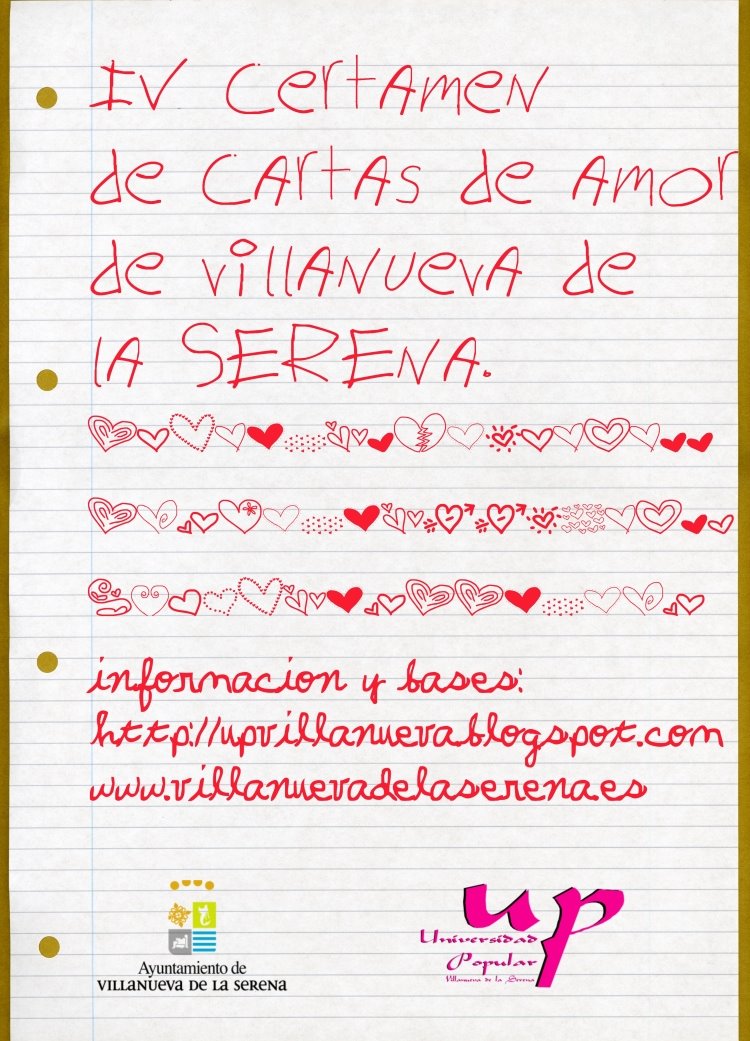 IV CertAmeN
de CArtAs de Amor
de villANuevA de
lA SERENA.
informacion y bases:
http://upvillanueva.blogspot.com
www.villanuevadelaserena.es
Ayuntamiento de
VILLANUEVA DE LA SERENA
up
Universidad
Popular
Villanueva de la Serena